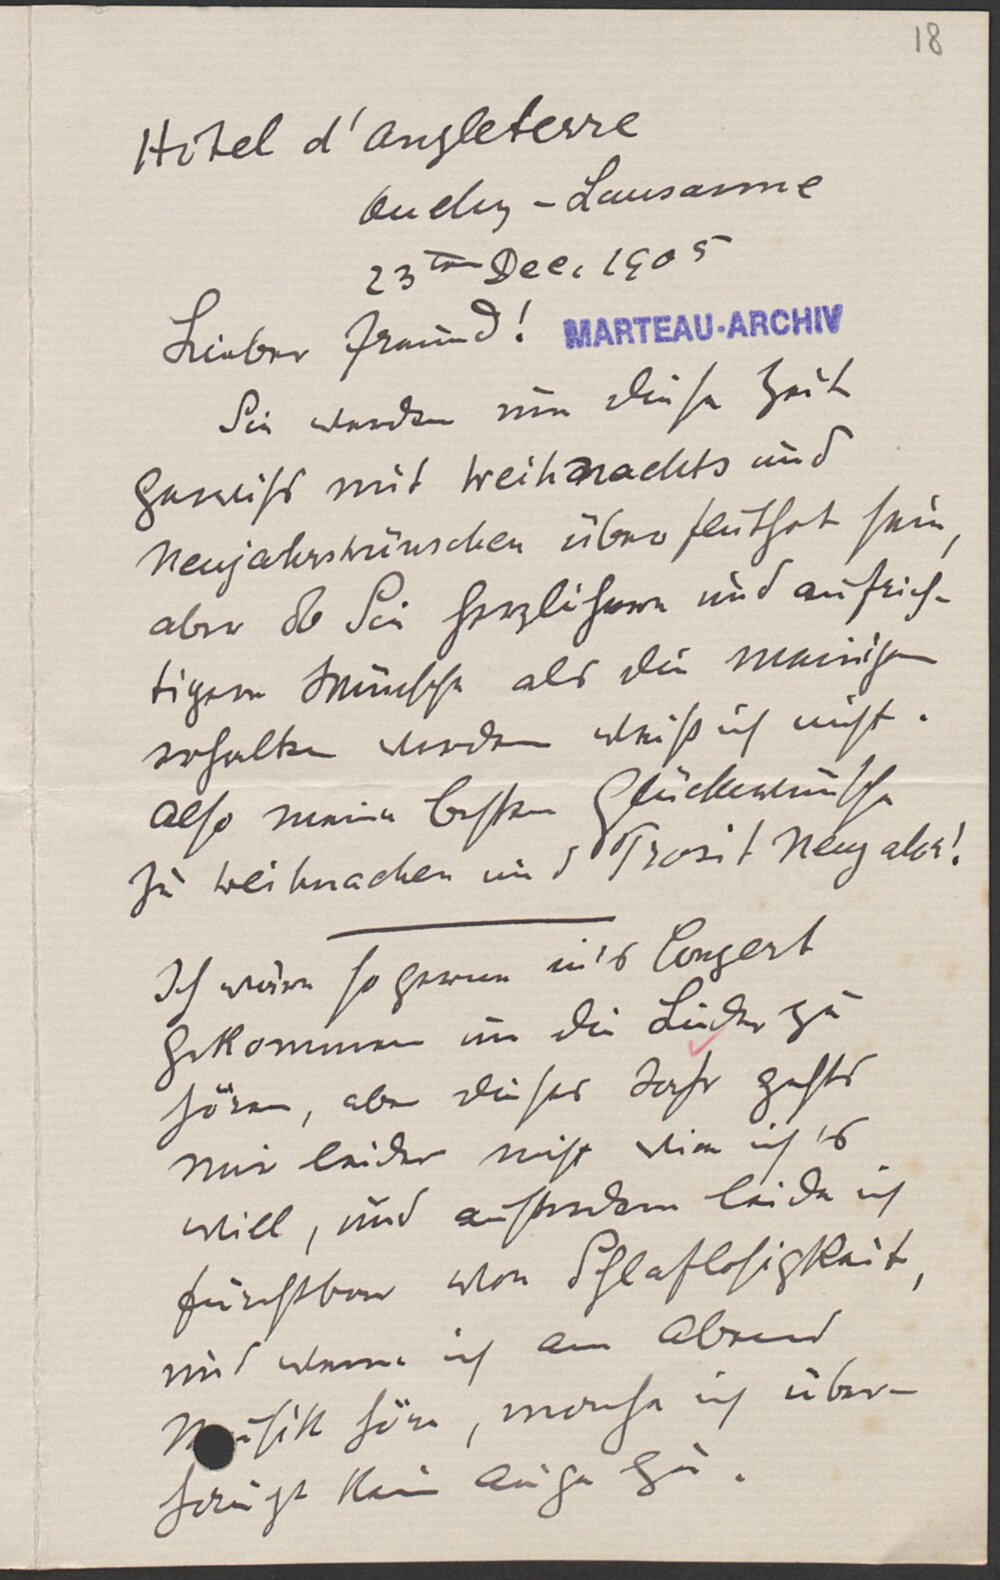 18
Hotel d'Angleterre
Ouchy – Lausanne
23ten Dec. 1905
Lieber Freund!
MARTEAU-ARCHIV
Sie werden um diese Zeit
gewiss mit Weihnachts und
Neujahrswünschen überfluthet sein,
aber ob Sie herzlichere und aufrich-
tigere Wünsche als die meinigen
erhalten werden weiß ich nicht.
Also meine besten Glückwünsche
zu Weihnachen und Prosit Neujahr!
Ich wäre so gerne in's Conzert
gekommen um die Lieder zu
hören, aber dieses Jahr gehts
mir leider nicht wie ich's
will, und ausserdem leide ich
furchtbar von Schlaflosigkeit,
und wenn ich am Abend
Musik höre, mache ich über-
haupt kein Auge zu.